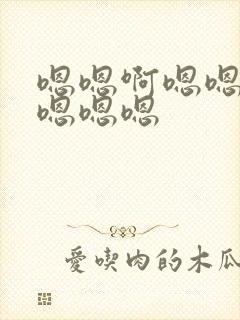 嗯嗯啊嗯嗯
嗯嗯嗯
愛喫肉的木瓜